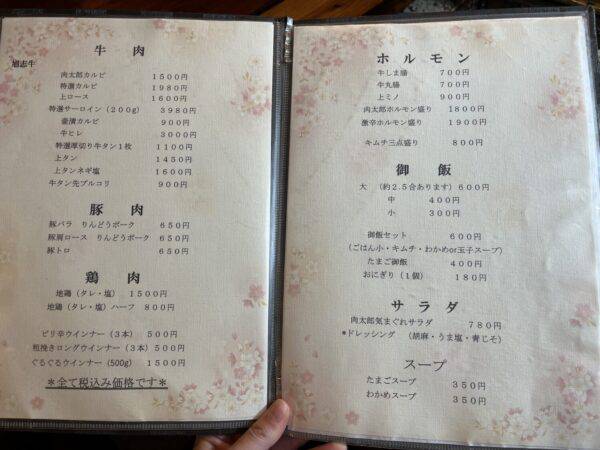 牛肉
旭志牛
肉太郎カルビ 1500円
特選カルビ 1980円
上ロース 1600円
特選サーロイン(200g) 3980円
壷漬カルビ 900円
牛ヒレ 3000円
特選厚切り牛タン1枚 1100円
上タン 1450円
上タンネギ塩 1600円
牛タン先プルコリ 900円
豚肉
豚バラ りんどうポーク 650円
豚肩ロース りんどうポーク 650円
豚トロ 650円
鶏肉
地鶏(タレ・塩) 1500円
地鶏(タレ・塩)ハーフ 800円
ピリ辛ウインナー(3本) 500円
粗挽きロングウインナー(3本) 500円
ぐるぐるウインナー(500g) 1500円
*全て税込み価格です*
ホルモン
牛しま腸 700円
牛丸腸 700円
上ミノ 900円
肉太郎ホルモン盛り 1800円
激辛ホルモン盛り 1900円
キムチ三点盛り 800円
御飯
大 (約2.5合あります) 600円
中 400円
小 300円
御飯セット 600円
(ごはん小・キムチ・わかめor玉子スープ)
たまご御飯 400円
おにぎり(1個) 180円
サラダ
肉太郎気まぐれサラダ 780円
*ドレッシング (胡麻・うま塩・青じそ)
スープ
たまごスープ 350円
わかめスープ 350円